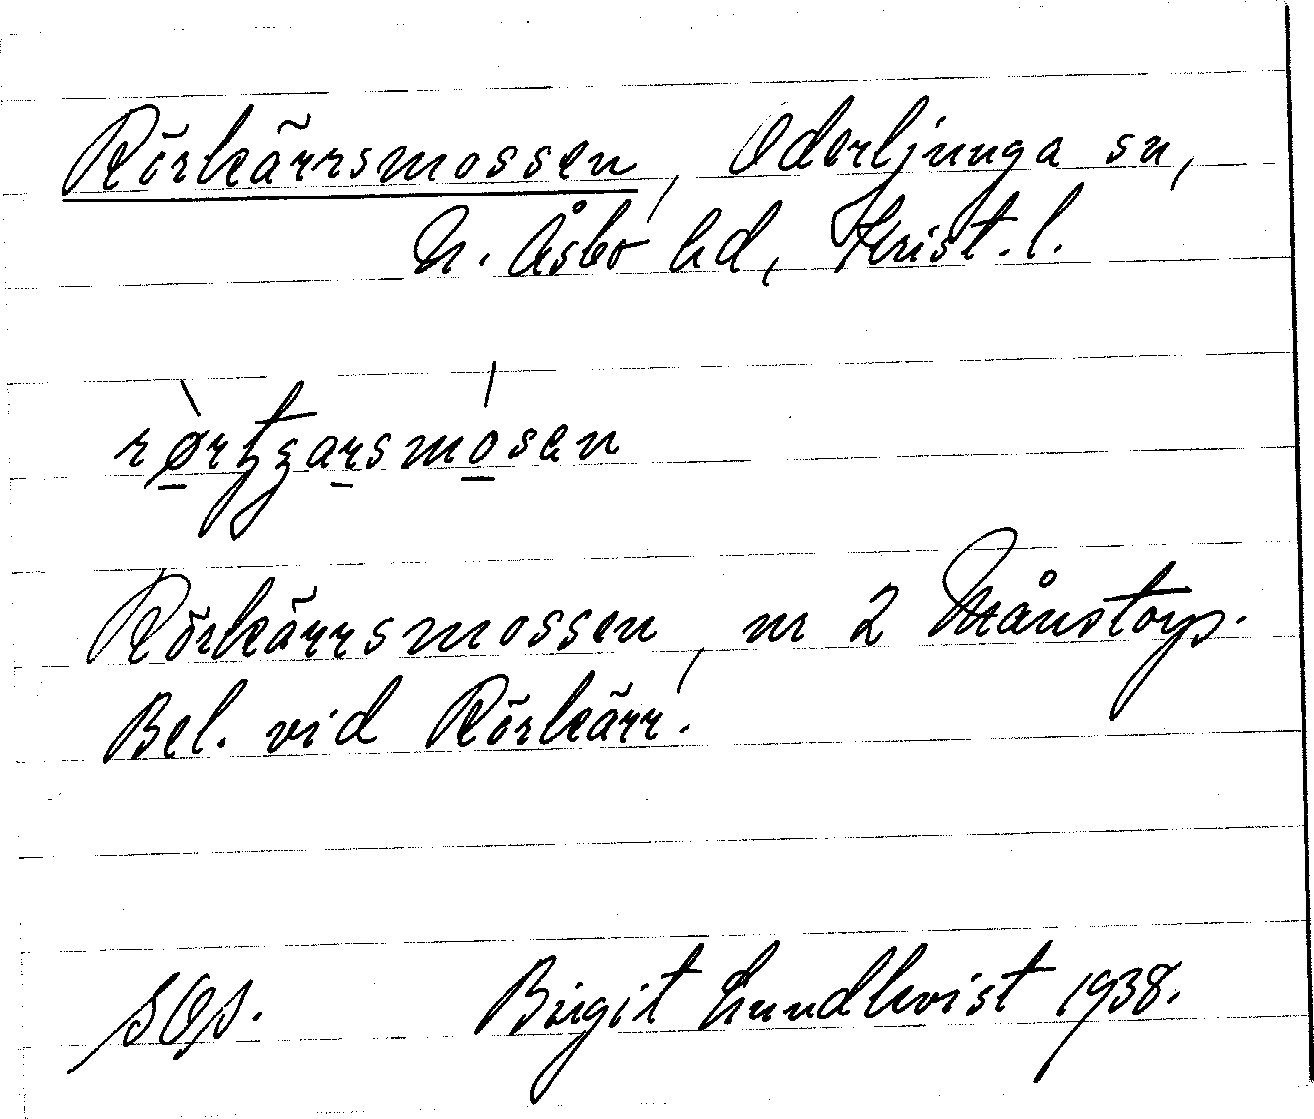 Rörkärrsmossen, Oderljunga sn,
N. Åsbo hd, Krist. l.
Rörkärrsmossen, nr 2 Månstorp.
Bel. vid Rörkärr.
SOS. Birgit Lundkvist 1938.